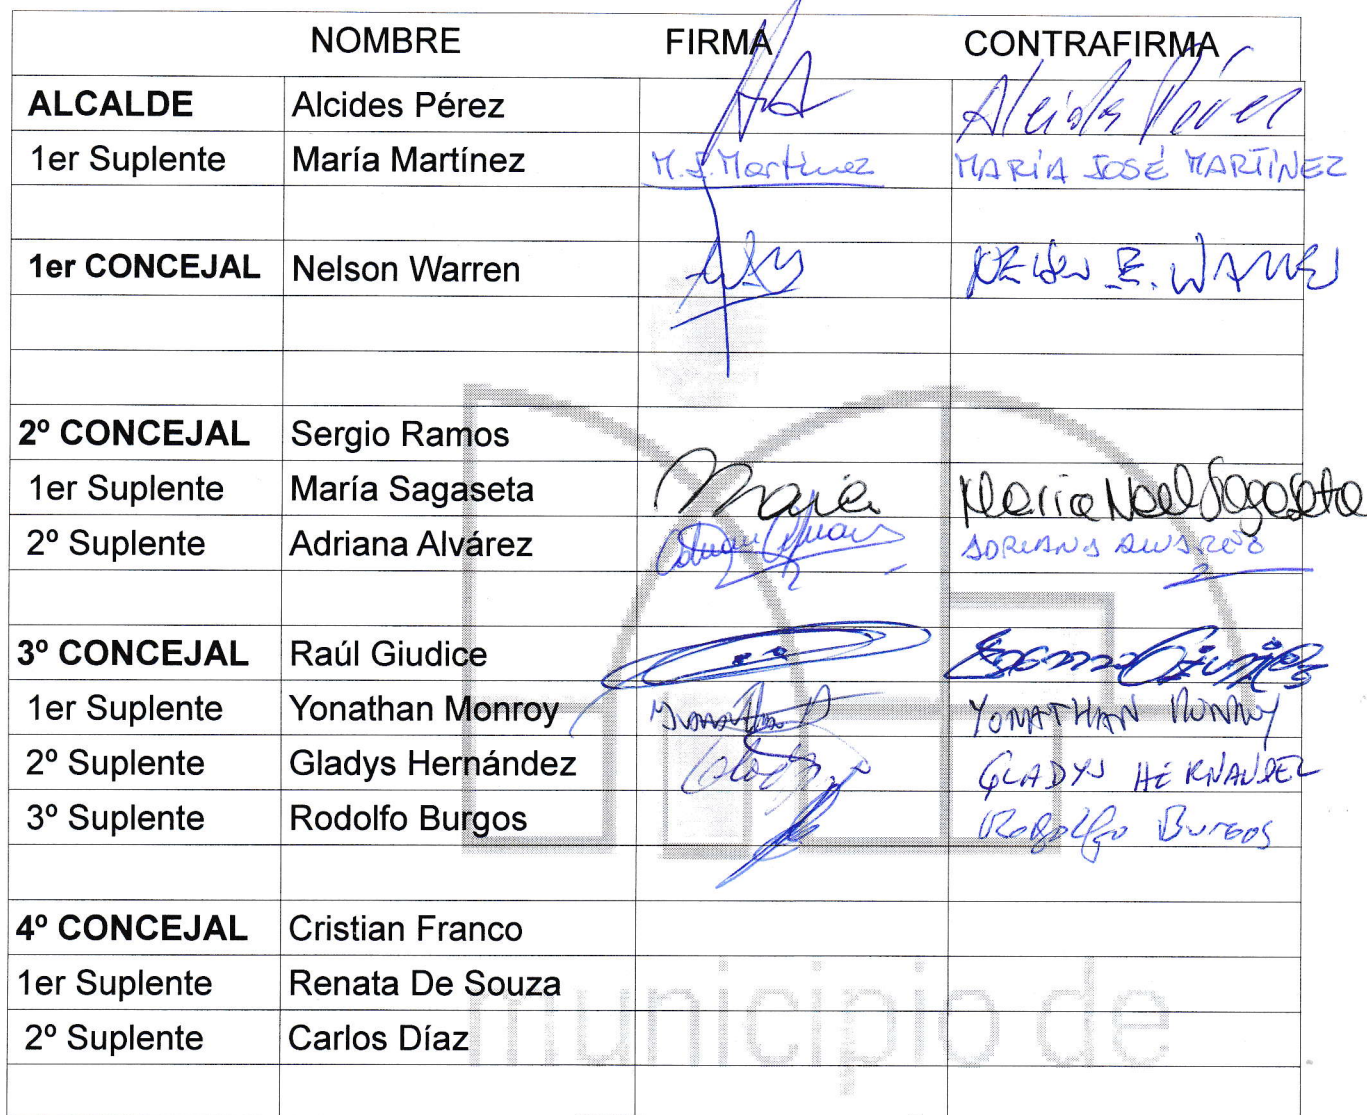 NOMBRE FIRMA CONTRAFIRMA
ALCALDE Alcides Pérez Alcides Pérez
1er Suplente María Martínez M.J.Martínez MARÍA JOSÉ MARTÍNEZ
1er CONCEJAL Nelson Warren NELSON E. WARREN
2º CONCEJAL Sergio Ramos
1er Suplente María Sagaseta María Maria Noel Sagaseta
2º Suplente Adriana Alvárez ADRIANA
3º CONCEJAL Raúl Giudice
1er Suplente Yonathan Monroy YONATHAN MONROY
2º Suplente Gladys Hernández GLADYS HERNANDEZ
3º Suplente Rodolfo Burgos Rodolfo Burgos
4º CONCEJAL Cristian Franco
1er Suplente Renata De Souza
2º Suplente Carlos Díaz
municipio de